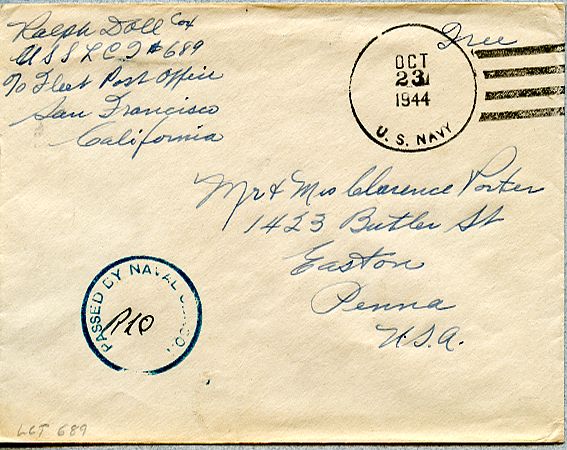 Ralph Doll Cox
U S S L C T #689
c/o Fleet Post Office
San Francisco
California
Free
OCT
23
1944
U. S. NAVY
Mr & Mrs Clarence Porter
1423 Butler St
Easton
Penna
U.S.A.
PASSED BY NAVAL CENSOR
LCT 689